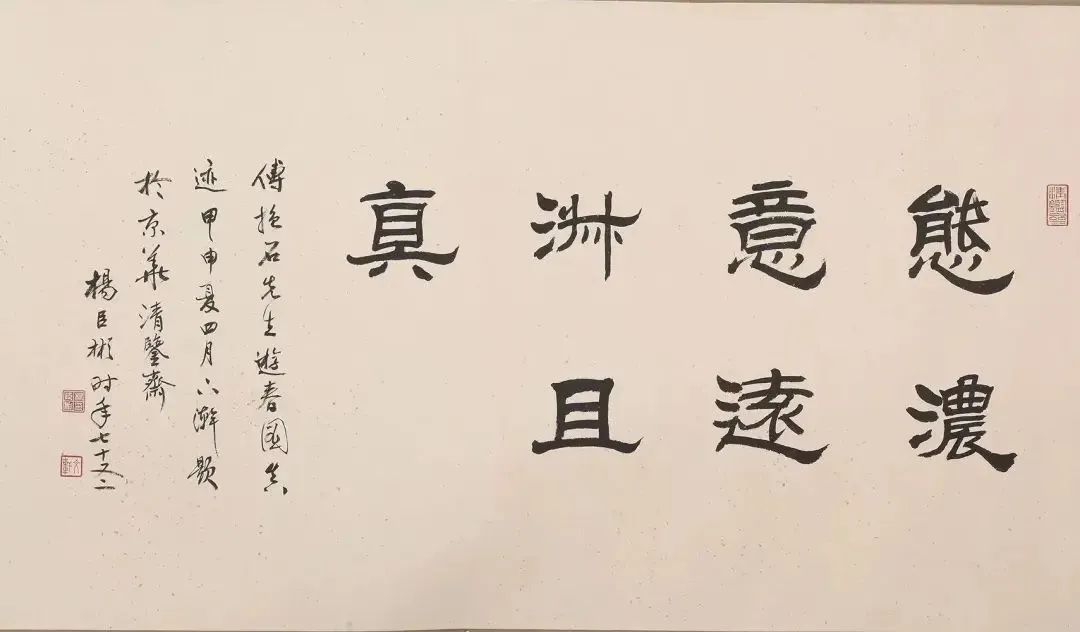 態濃
意遠
淑且
真
傅抱石先生遊春圖真
迹甲申夏四月下澣題
於京華清鑒齋
楊臣彬时年七十又二